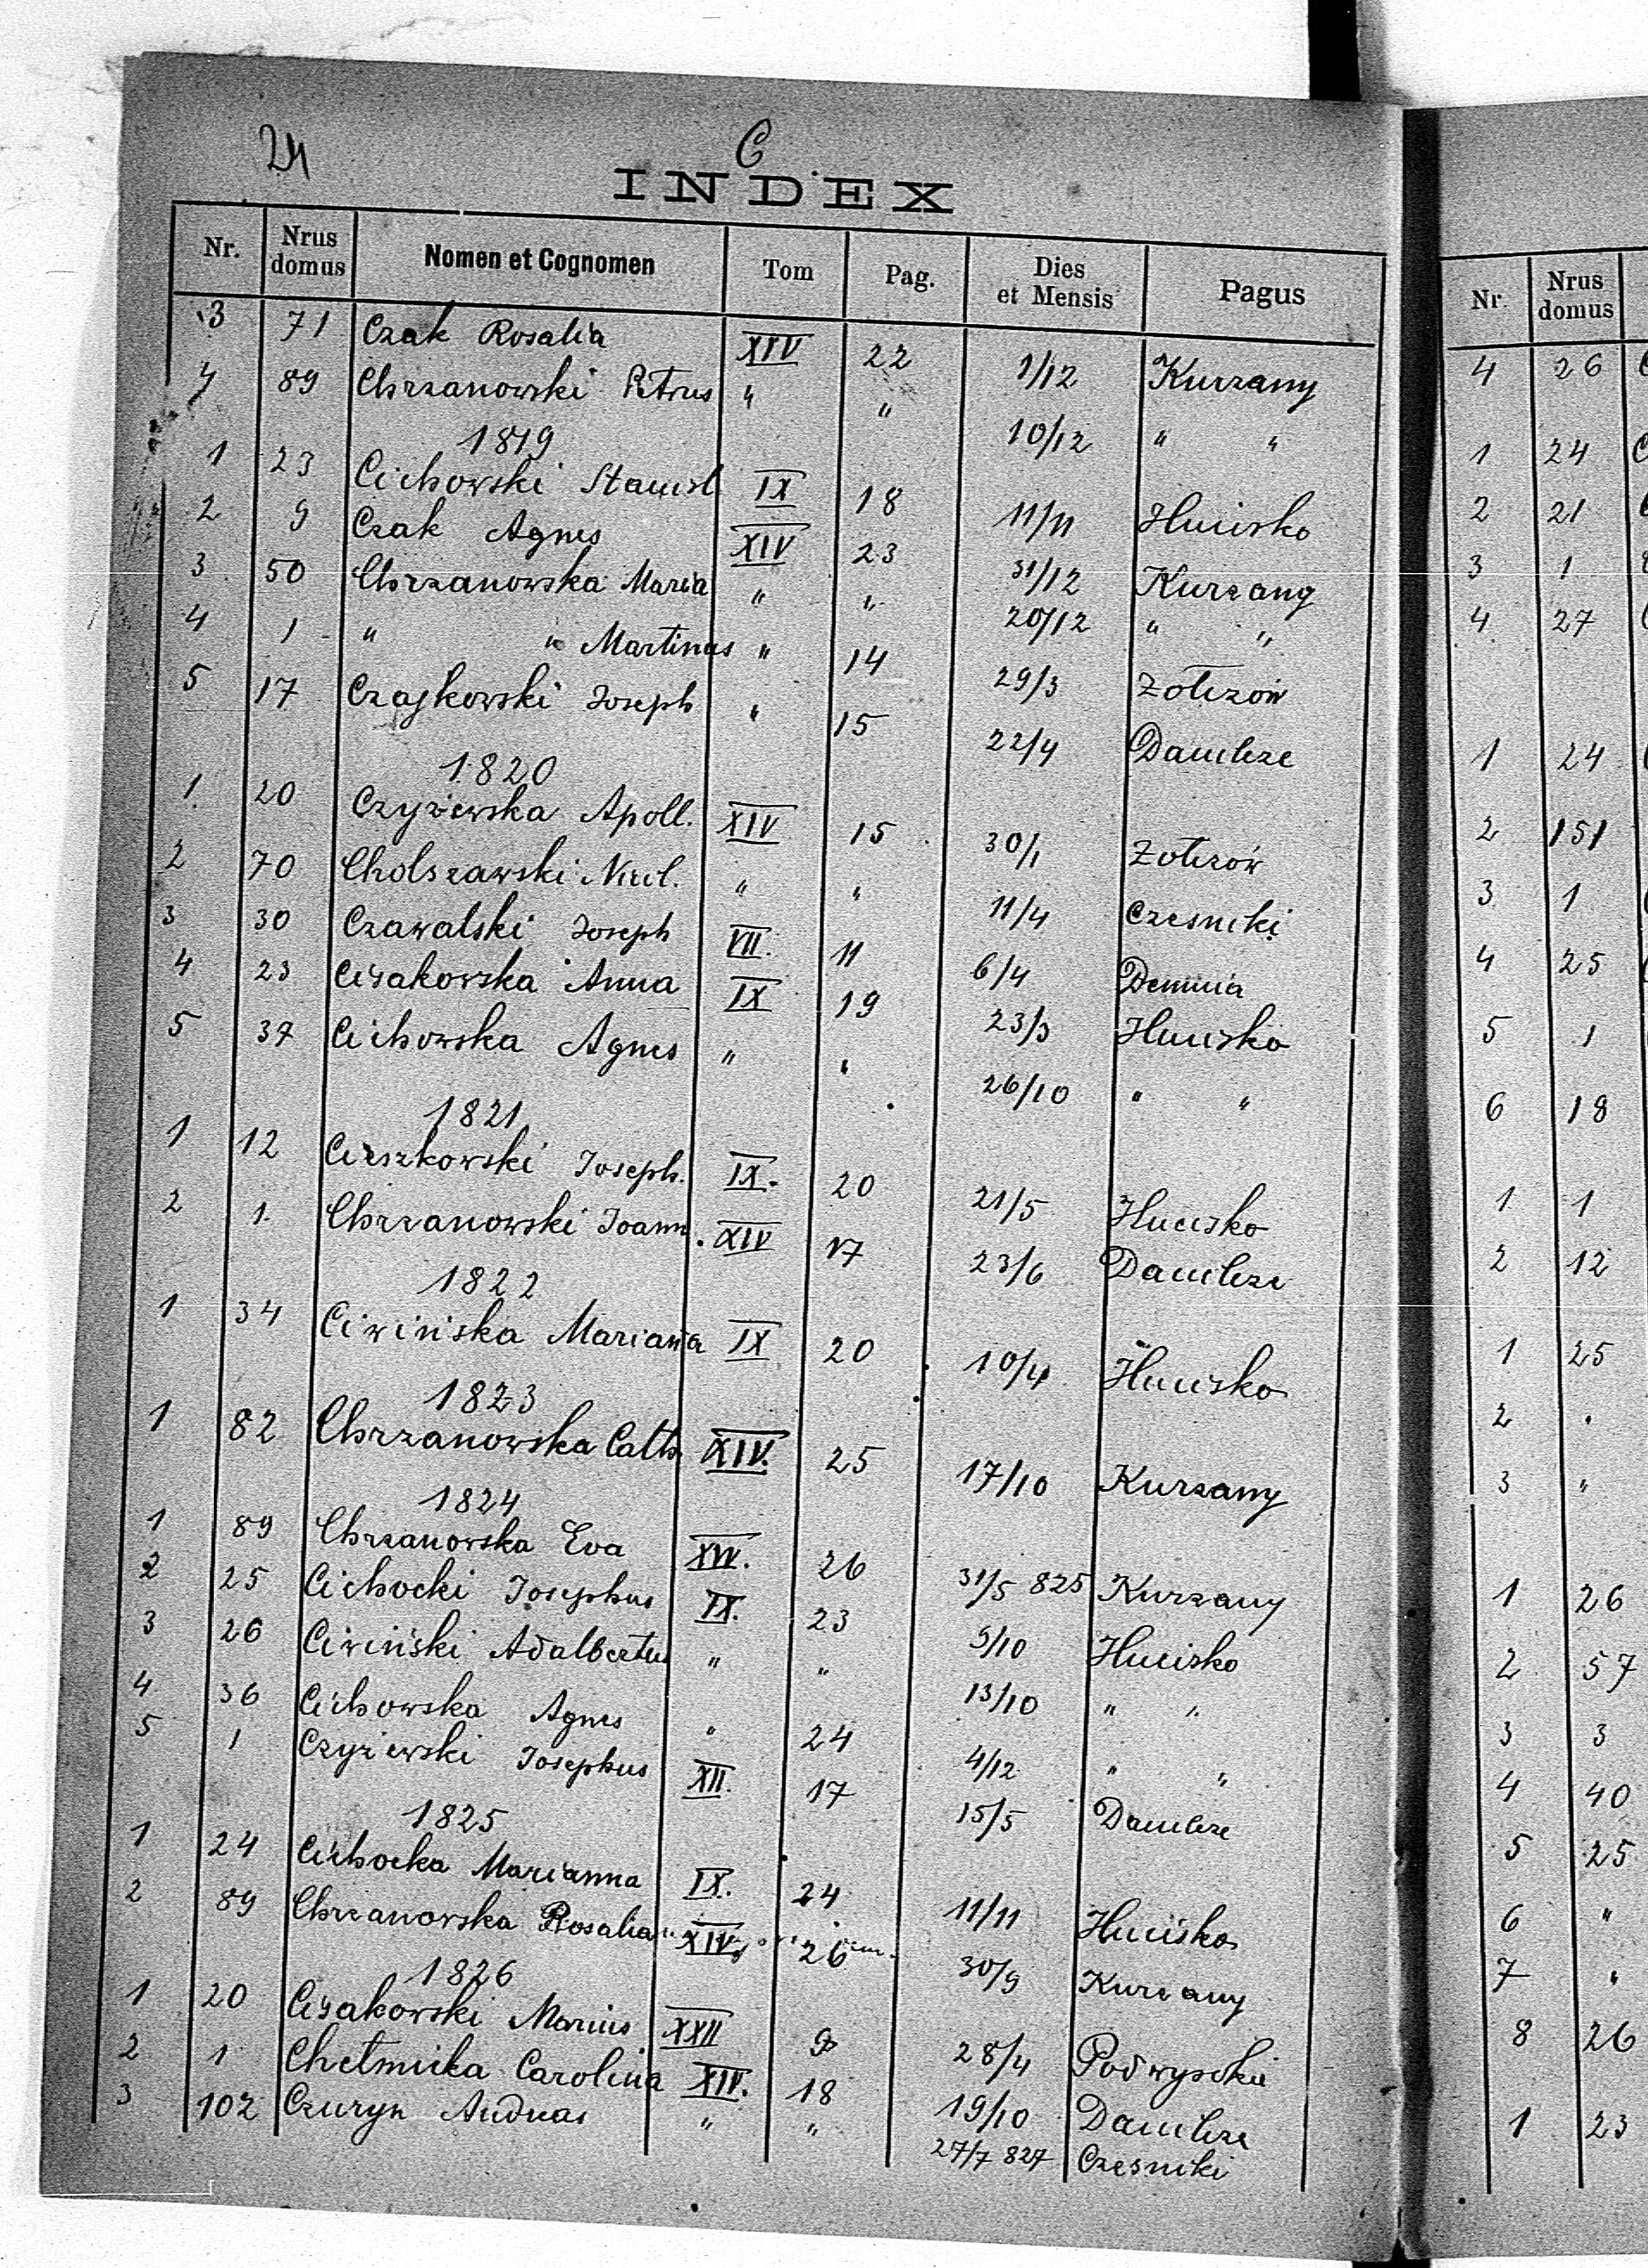 24
C
INDEX
Nr. Nrus domus Nomen et Cognomen Tom Pag. Dies et Mensis Pagus
3 71 Czak Rosalia XIV 22 1/12 Kurzany
4 89 Chrzanowski Petrus " " 10/12 " "
1819
1 23 Cichowski Stanisl IX 18 11/11 Hucisko
2 9 Czak Agnes XIV 23 31/12 Kurzany
3 50 Chrzanowska Maria " " 20/12 " "
4 1 " " Martinus " 14 29/3 Zołczów
5 17 Czajkowski Joseph " 15 22/4 Danilcze
1820
1 20 Czyżewska Apoll. XIV 15 30/1 Zołczów
2 70 " " 11/4 Czesniki
3 30 Czawalski Joseph VII. 11 6/4 Demnia
4 23 Ciżakowska Anna IX 19 23/3 Hucisko
5 37 Cichowska Agnes " " 26/10 " "
1821
1 12 Cieszkowski Joseph. IX. 20 21/5 Hucisko
2 1 Chrzanowski Joann. XIV 17 23/6 Danilcze
1822
1 34 Ciwińska Marianna IX 20 10/4 Hucisko
1823
1 82 Chrzanowska Cath. XIV. 25 17/10 Kurzany
1824
1 89 Chrzanowska Eva XIV. 26 31/5 825 Kurzany
2 25 Cichocki Josephus IX. 23 9/10 Hucisko
3 26 Ciwiński Adalbertus " " 13/10 " "
4 36 Cichowska Agnes " 24 4/12 " "
5 1 Czyżewski Josephus XII. 17 15/5 Danilcze
1825
1 24 Cichocka Marianna IX. 24 11/11 Hucisko
2 89 Chrzanowska Rosalia XIV 26 30/9 Kurzany
1826
1 20 Ciżakowski XXII 28/4 Podwysokie
2 1 Chełmicka Carolina XIV. 18 19/10 Danilcze
3 102 Czuryk Andreas " " 27/7 827 Czesniki
Nr. Nrus domus
4 26
1 24
2 21
3 1
4 27
1 24
2 151
3 1
4 25
5 1
6 18
1 1
2 12
1 25
2 "
3 "
1 26
2 57
3 3
4 40
5 25
6 "
7 "
8 26
1 23